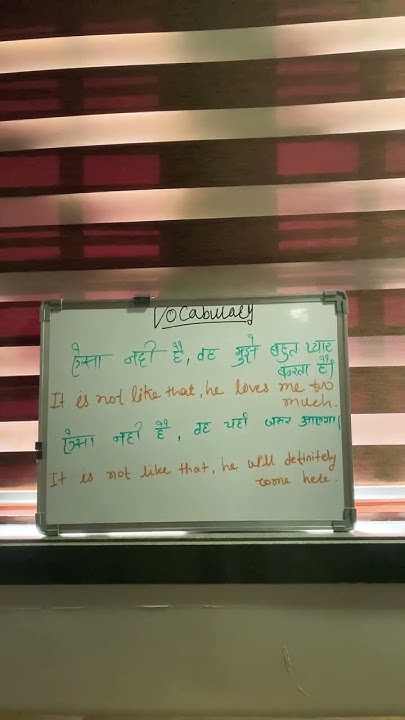 Vocabulary
ऐसा नहीं है, वह मुझे बहुत प्यार
करता है।
It is not like that, he loves me too
much.
ऐसा नहीं है, वह यहाँ जरूर आएगा।
It is not like that, he will definitely
come here.